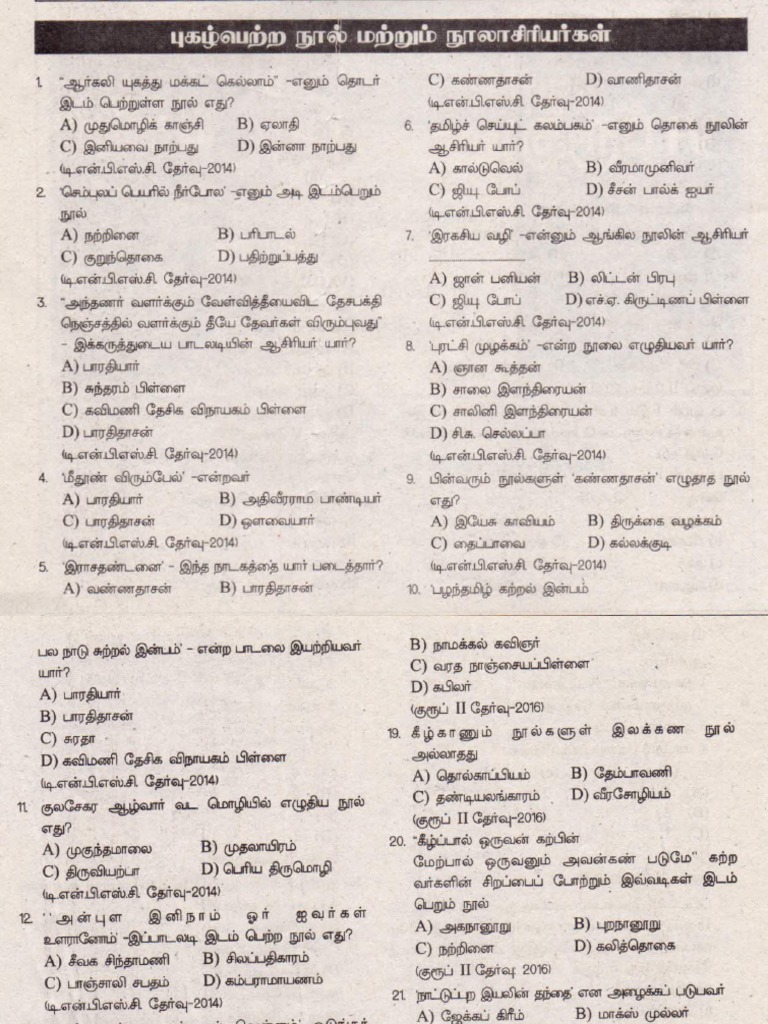 புகழ்பெற்ற நூல் மற்றும் நூலாசிரியர்கள்
1. "ஆர்கலி யுகத்து மக்கட் கெல்லாம்" -எனும் தொடர்
இடம் பெற்றுள்ள நூல் எது?
A) முதுமொழிக் காஞ்சி B) ஏலாதி
C) இனியவை நாற்பது D) இன்னா நாற்பது
(டி.என்.பி.எஸ்.சி. தேர்வு-2014)
2. 'செம்புலப் பெயரில் நீர்போல' -எனும் அடி இடம்பெறும்
நூல்
A) நற்றினை B) பரிபாடல்
C) குறுந்தொகை D) பதிற்றுப்பத்து
(டி.என்.பி.எஸ்.சி. தேர்வு-2014)
3. "அந்தணர் வளர்க்கும் வேள்வித்தீயைவிட தேசபக்தி
நெஞ்சத்தில் வளர்க்கும் தீயே தேவர்கள் விரும்புவது"
- இக்கருத்துடைய பாடலடியின் ஆசிரியர் யார்?
A) பாரதியார்
B) சுந்தரம் பிள்ளை
C) கவிமணி தேசிக விநாயகம் பிள்ளை
D) பாரதிதாசன்
(டி.என்.பி.எஸ்.சி. தேர்வு-2014)
4. 'மீதூண் விரும்பேல்' -என்றவர்
A) பாரதியார் B) அதிவீரராம பாண்டியர்
C) பாரதிதாசன் D) ஔவையார்
(டி.என்.பி.எஸ்.சி. தேர்வு-2014)
5. 'இராசதண்டனை' - இந்த நாடகத்தை யார் படைத்தார்?
A) வண்ணதாசன் B) பாரதிதாசன்
C) கண்ணதாசன் D) வாணிதாசன்
(டி.என்.பி.எஸ்.சி. தேர்வு-2014)
6. 'தமிழ்ச் செய்யுட் கலம்பகம்' -எனும் தொகை நூலின்
ஆசிரியர் யார்?
A) கால்டுவெல் B) வீரமாமுனிவர்
C) ஜியு போப் D) சீசன் பால்க் ஐயர்
(டி.என்.பி.எஸ்.சி. தேர்வு-2014)
7. 'இரகசிய வழி' -என்னும் ஆங்கில நூலின் ஆசிரியர்
A) ஜான் பனியன் B) லிட்டன் பிரபு
C) ஜியு போப் D) எச்.ஏ. கிருட்டிணப் பிள்ளை
(டி.என்.பி.எஸ்.சி. தேர்வு-2014)
8. 'புரட்சி முழக்கம்' -என்ற நூலை எழுதியவர் யார்?
A) ஞான கூத்தன்
B) சாலை இளந்திரையன்
C) சாலினி இளந்திரையன்
D) சி.சு. செல்லப்பா
(டி.என்.பி.எஸ்.சி. தேர்வு-2014)
9. பின்வரும் நூல்களுள் 'கண்ணதாசன்' எழுதாத நூல்
எது?
A) இயேசு காவியம் B) திருக்கை வழக்கம்
C) தைப்பாவை D) கல்லக்குடி
(டி.என்.பி.எஸ்.சி. தேர்வு-2014)
10. 'பழந்தமிழ் கற்றல் இன்பம்
பல நாடு சுற்றல் இன்பம்' - என்ற பாடலை இயற்றியவர்
யார்?
A) பாரதியார்
B) பாரதிதாசன்
C) சுரதா
D) கவிமணி தேசிக விநாயகம் பிள்ளை
(டி.என்.பி.எஸ்.சி. தேர்வு-2014)
11. குலசேகர ஆழ்வார் வட மொழியில் எழுதிய நூல்
எது?
A) முகுந்தமாலை B) முதலாயிரம்
C) திருவியற்பா D) பெரிய திருமொழி
(டி.என்.பி.எஸ்.சி. தேர்வு-2014)
12. ''அன்புள இனிநாம் ஓர் ஐவர்கள்
உளரானோம்' -இப்பாடலடி இடம் பெற்ற நூல் எது?
A) சீவக சிந்தாமணி B) சிலப்பதிகாரம்
C) பாஞ்சாலி சபதம் D) கம்பராமாயணம்
(டி.என்.பி.எஸ்.சி. தேர்வு-2014)
B) நாமக்கல் கவிஞர்
C) வரத நாஞ்சையப்பிள்ளை
D) கபிலர்
(குரூப் II தேர்வு-2016)
19. கீழ்காணும் நூல்களுள் இலக்கண நூல்
அல்லாதது
A) தொல்காப்பியம் B) தேம்பாவணி
C) தண்டியலங்காரம் D) வீரசோழியம்
(குரூப் II தேர்வு-2016)
20. "கீழ்ப்பால் ஒருவன் கற்பின்
மேற்பால் ஒருவனும் அவன்கண் படுமே" கற்ற
வர்களின் சிறப்பைப் போற்றும் இவ்வடிகள் இடம்
பெறும் நூல்
A) அகநானூறு B) புறநானூறு
C) நற்றினை D) கலித்தொகை
(குரூப் II தேர்வு 2016)
21. 'நாட்டுப்புற இயலின் தந்தை' என அழைக்கப் படுபவர்
A) ஜேக்கப் கிரீம் B) மாக்ஸ் முல்லர்